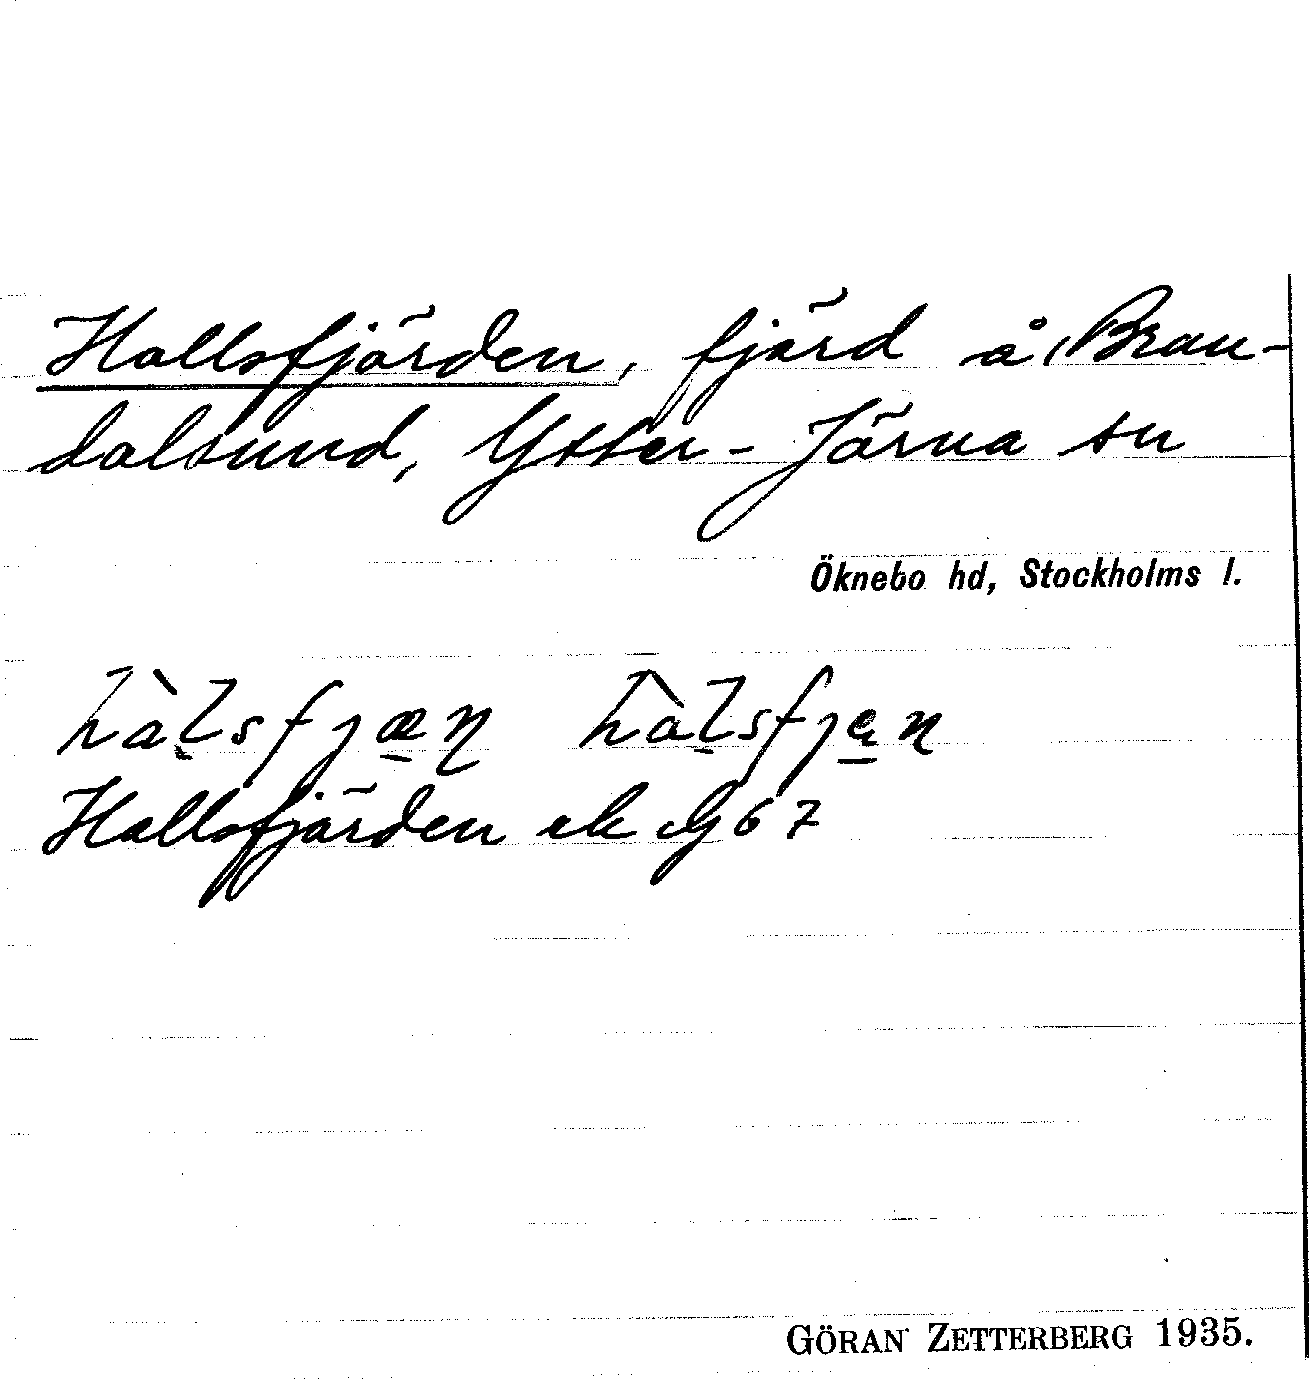 Hallsfjärden, fjärd å Bran-
dalsund, Ytter-Järna sn
Öknebo hd, Stockholms l.
hàlsfjæn hàlsfjen
Hallsfjärden ek 67
GÖRAN ZETTERBERG 1935.